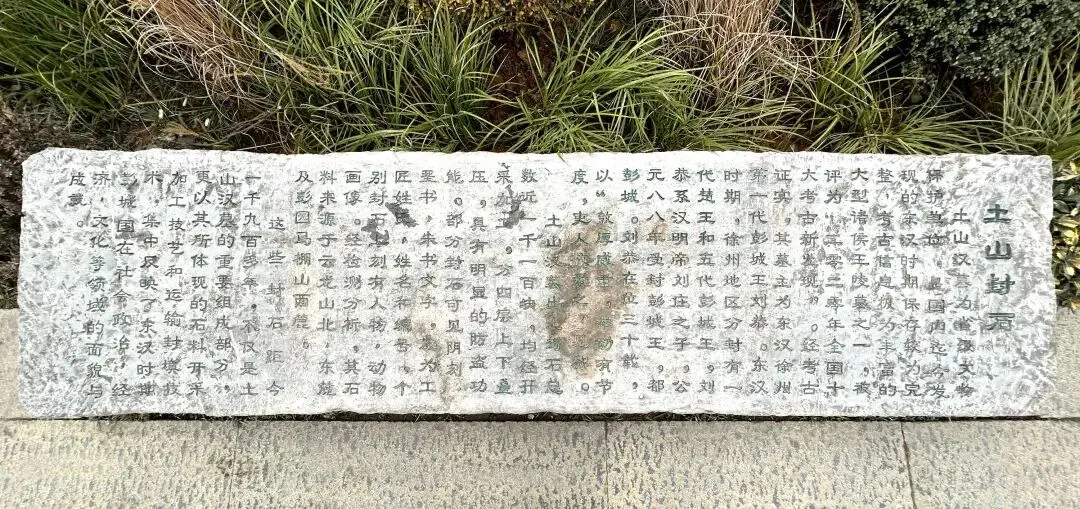 土山封石
土山汉墓为省级文物
保护单位,是国内迄今发
现的东汉时期保存较为完
整、考古信息较为丰富的
大型诸侯王陵墓之一,被
评为“二零二零年全国十
大考古新发现”。经考古
证实,其墓主为东汉徐州
第一代彭城王刘恭。东汉
时期,徐州地区分封有一
代楚王和五代彭城王,刘
恭系汉明帝刘庄之子,公
元八八年受封彭城王,都
彭城。刘恭在位三十载,
以“敦厚威重,举动有节
度,吏人敬爱之”
土山汉墓 石总
数近一千一百块,均经开
采加工,分四层上下叠
压,具有明显的防盗功
能。部分封石可见阴刻、
墨书、朱书文字,多为工
匠姓氏、姓名和编号,个
别封石上刻有人物、动物
画像。经检测分析,其石
料来源于云龙山北、东麓
及 马棚山西麓。
这些封石距今
一千九百多年,不仅是土
山汉墓的重要组成部分,
更以其所体现的石料开采
加工技艺和运输封填技
术,集中反映了东汉时期
彭城国在社会政治、经
济、文化等领域的面貌与
成就。